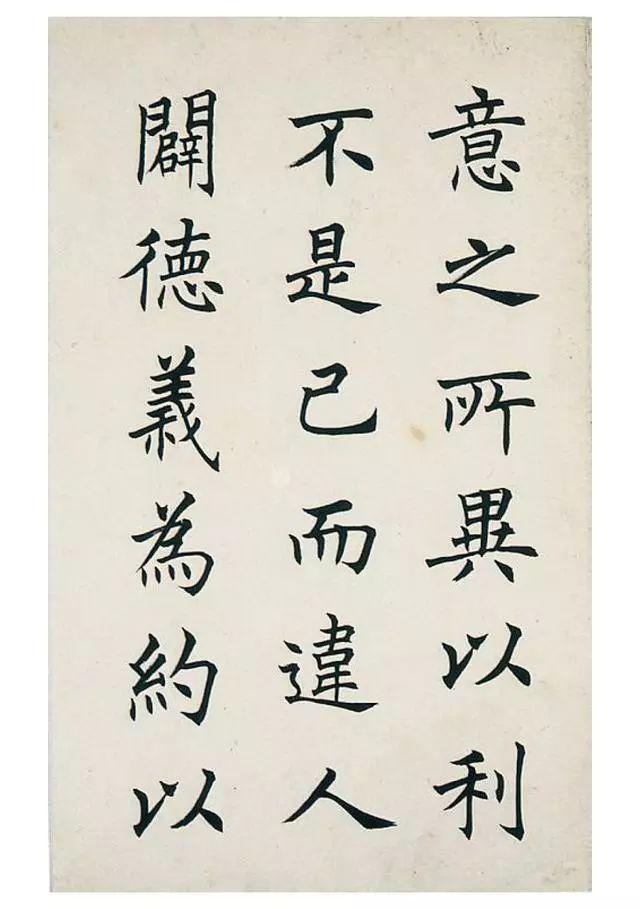 意之所異以利
不是己而違人
闢德義為約以